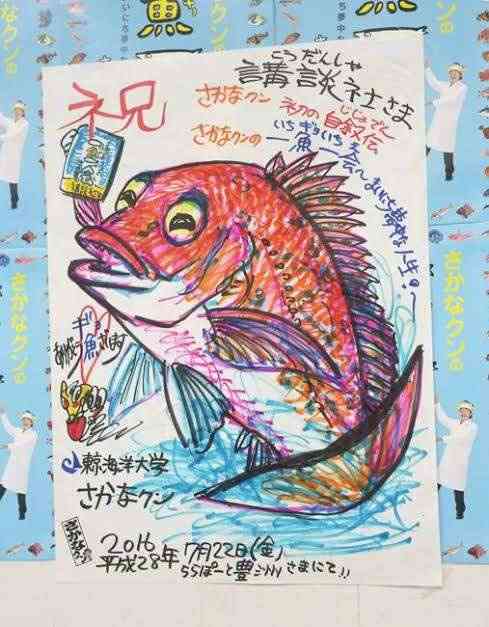 こうだんしゃ
講談社さま
祝
さかなクン 初の自叙伝
じじょでん
さかなクンの
いちぎょいちえ
一魚一会
〜まいにち夢中な人生!〜
ギョ
魚
東京海洋大学
さかなクン
さかなクン
2016
平成28年 7月22日(金)
ららぽーと豊洲さまにて!!
さかなクンの
さかなクンの
魚